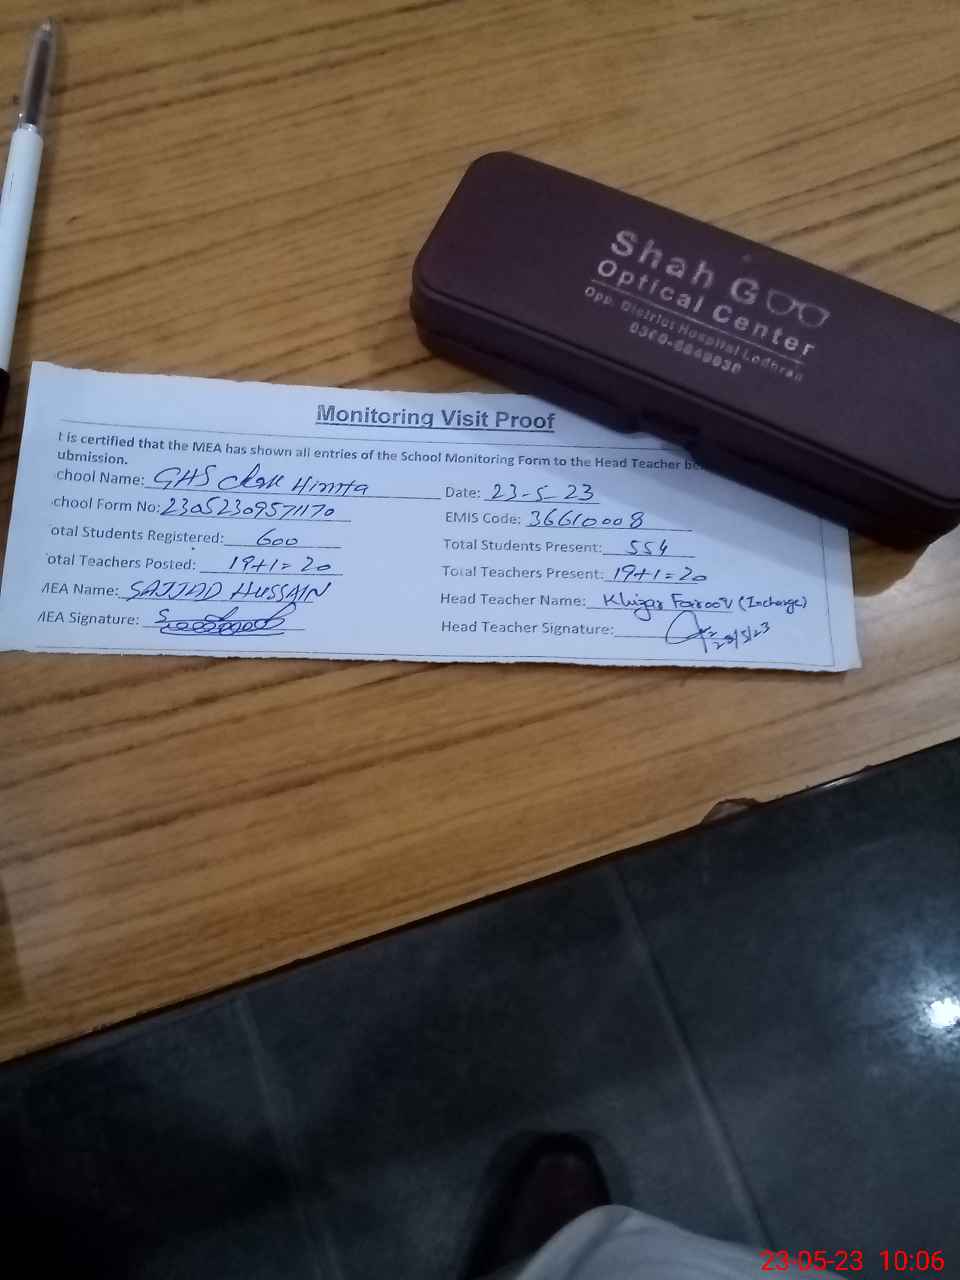 Shah G
Optical Center
Opp. District Hospital Lodhran
Monitoring Visit Proof
t is certified that the MEA has shown all entries of the School Monitoring Form to the Head Teacher be
ubmission.
chool Name: GHS Chak Himta
Date: 23-5-23
chool Form No: 23052309571170
EMIS Code: 36610008
otal Students Registered: 600
Total Students Present: 554
otal Teachers Posted: 19+1=20
Total Teachers Present: 19+1=20
MEA Name: SAJJAD HUSSAIN
Head Teacher Name: Khizar Farooq (Incharge)
MEA Signature:
Head Teacher Signature: 23/5/23
23-05-23 10:06